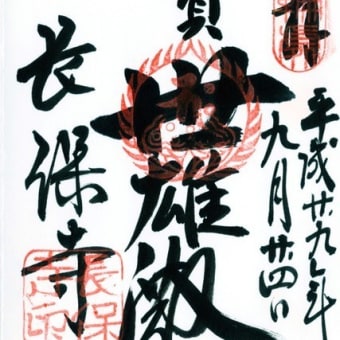 拝
平成廿九年
九月廿四日
世雄殿
長保寺
長保寺印